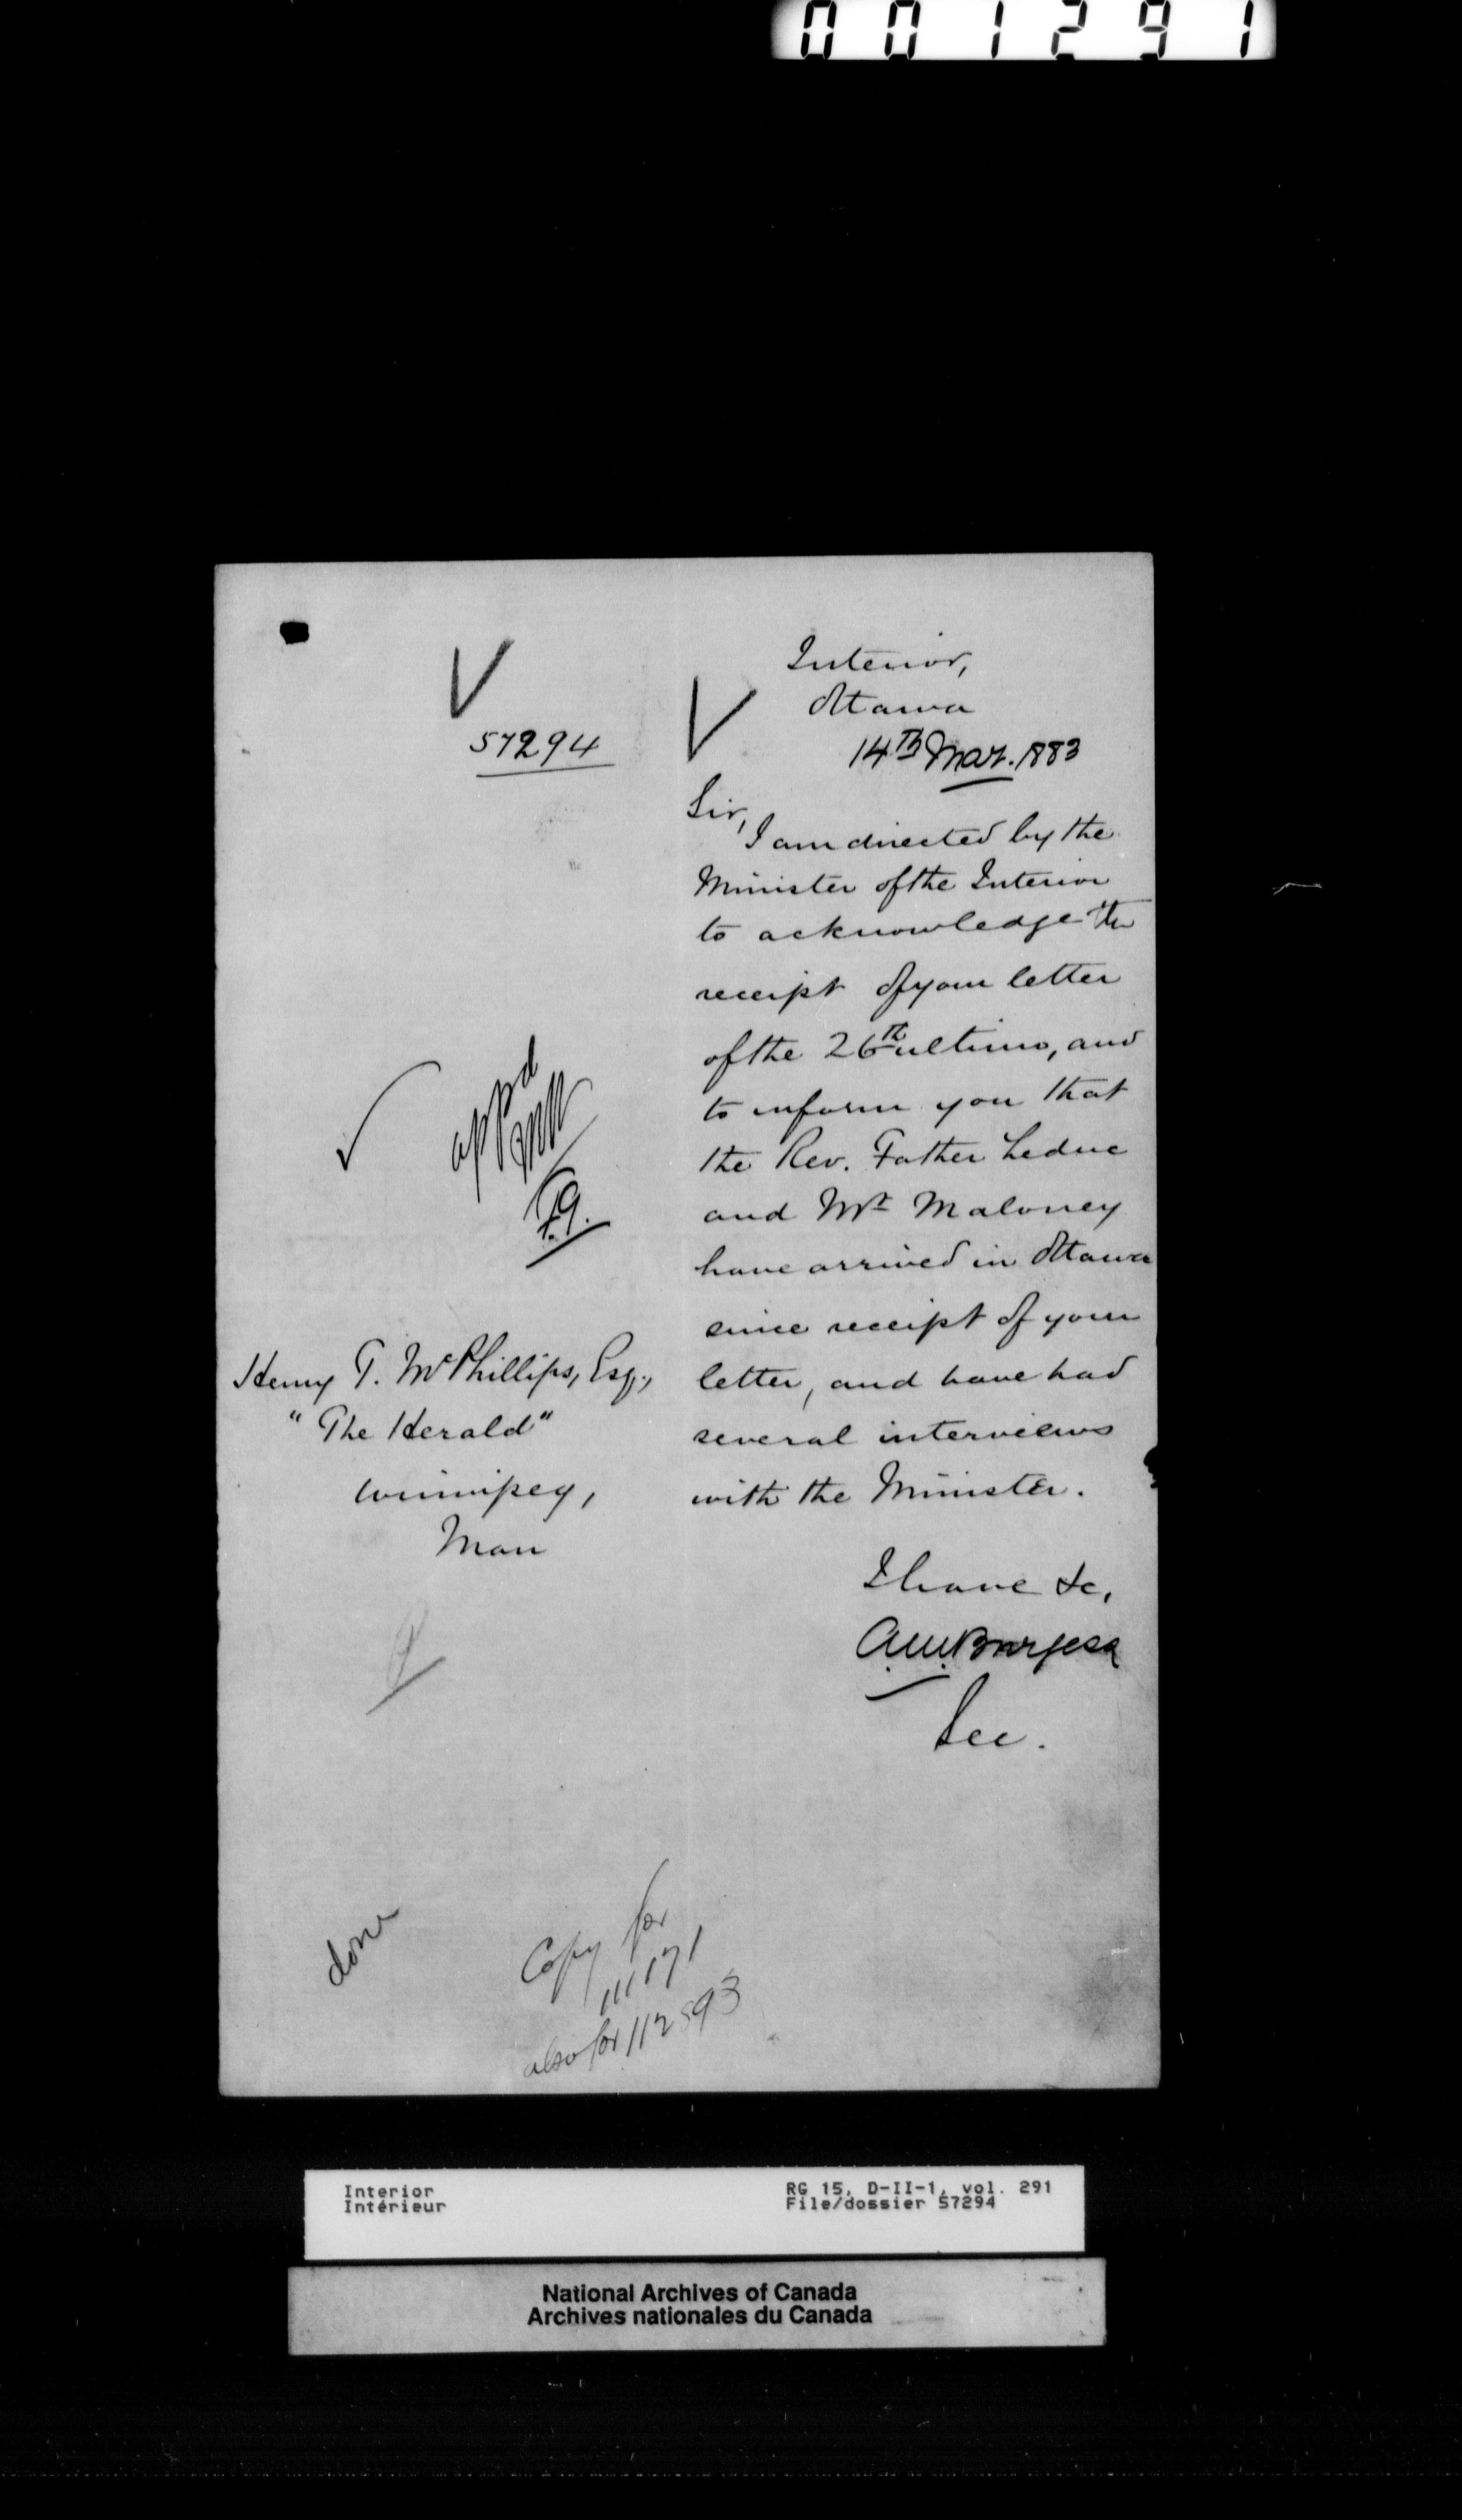 001291
57294
Interior,
Ottawa
14th Mar. 1883
Sir,
I am directed by the
Minister of the Interior
to acknowledge the
receipt of your letter
of the 26th ultimo, and
to inform you that
the Rev. Father Leduc
and Mr Maloney
have arrived in Ottawa
since receipt of your
letter, and have had
several interviews
with the Minister.
I have &c,
A.M. Burgess
Sec.
Henry T. McPhillips, Esq.,
"The Herald"
Winnipeg,
Man
done
Copy for
111171
also for 112593
Interior
Intérieur
RG 15, D-II-1, vol. 291
File/dossier 57294
National Archives of Canada
Archives nationales du Canada